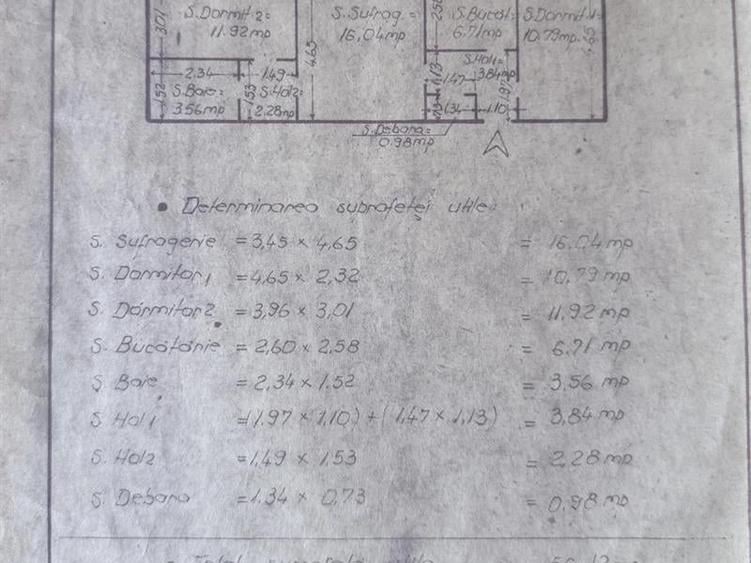 S. Dormit.2= S. Sufrag.= S. Bucăt.= S. Dormit.1=
11.92 mp 16,04 mp 6.71 mp 10.79 mp
3,01 4.65
2.34 1.49 S. Hol1=
1.47 3.84 mp
1.13
S. Baie= S. Hol2=
1.52 3.56 mp 1.53 2.28 mp 1.34 1.10
S. Debara=
0.98 mp
• Determinarea suprafeței utile:
S. Sufragerie = 3,45 × 4,65 = 16,04 mp
S. Dormitor1 = 4,65 × 2,32 = 10,79 mp
S. Dormitor2 = 3,96 × 3,01 = 11,92 mp
S. Bucătărie = 2,60 × 2,58 = 6,71 mp
S. Baie = 2,34 × 1.52 = 3,56 mp
S. Hol1 = (1.97 × 1,10) + (1,47 × 1,13) = 3,84 mp
S. Hol2 = 1,49 × 1,53 = 2,28 mp
S. Debara = 1.34 × 0,73 = 0,98 mp